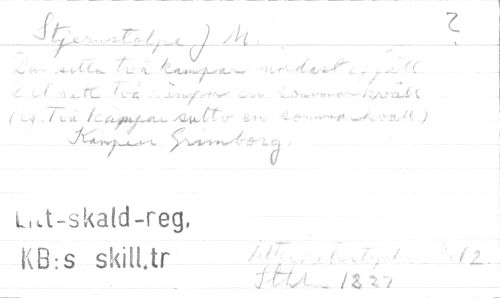 Stjernstolpe J M. ?
Där sitta två kämpar nordast i fjäll
Det satt två kämpar en sommarkväll
(ex. Två kämpar sutto en sommarkväll.)
Kämpen Grimborg.
Litt-skald-reg.
KB:s skill.tr
2.
Sthlm 1827